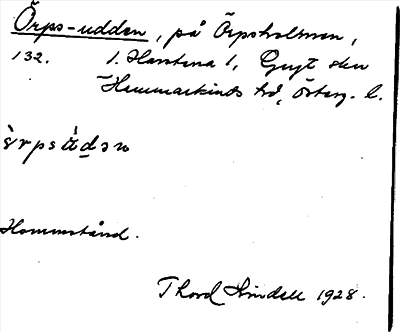 Örps-udden, på Örpsholmen,
132. 1. Harstena 1, Gryt skn
Hammarkinds hd, Österg. l.
ö̀rpsúdən
Hammstånd.
Thord Lindell 1928.